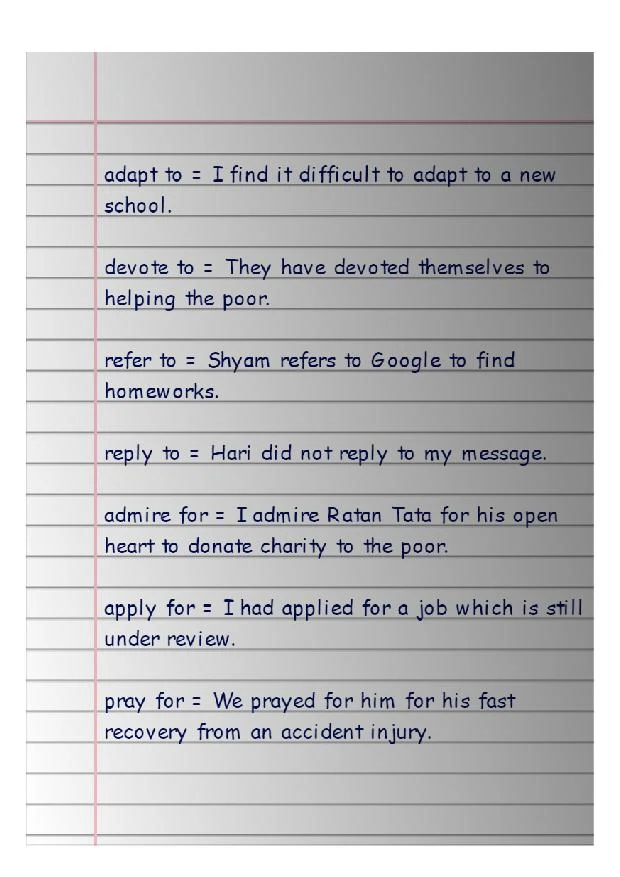 adapt to = I find it difficult to adapt to a new
school.
devote to = They have devoted themselves to
helping the poor.
refer to = Shyam refers to Google to find
homeworks.
reply to = Hari did not reply to my message.
admire for = I admire Ratan Tata for his open
heart to donate charity to the poor.
apply for = I had applied for a job which is still
under review.
pray for = We prayed for him for his fast
recovery from an accident injury.